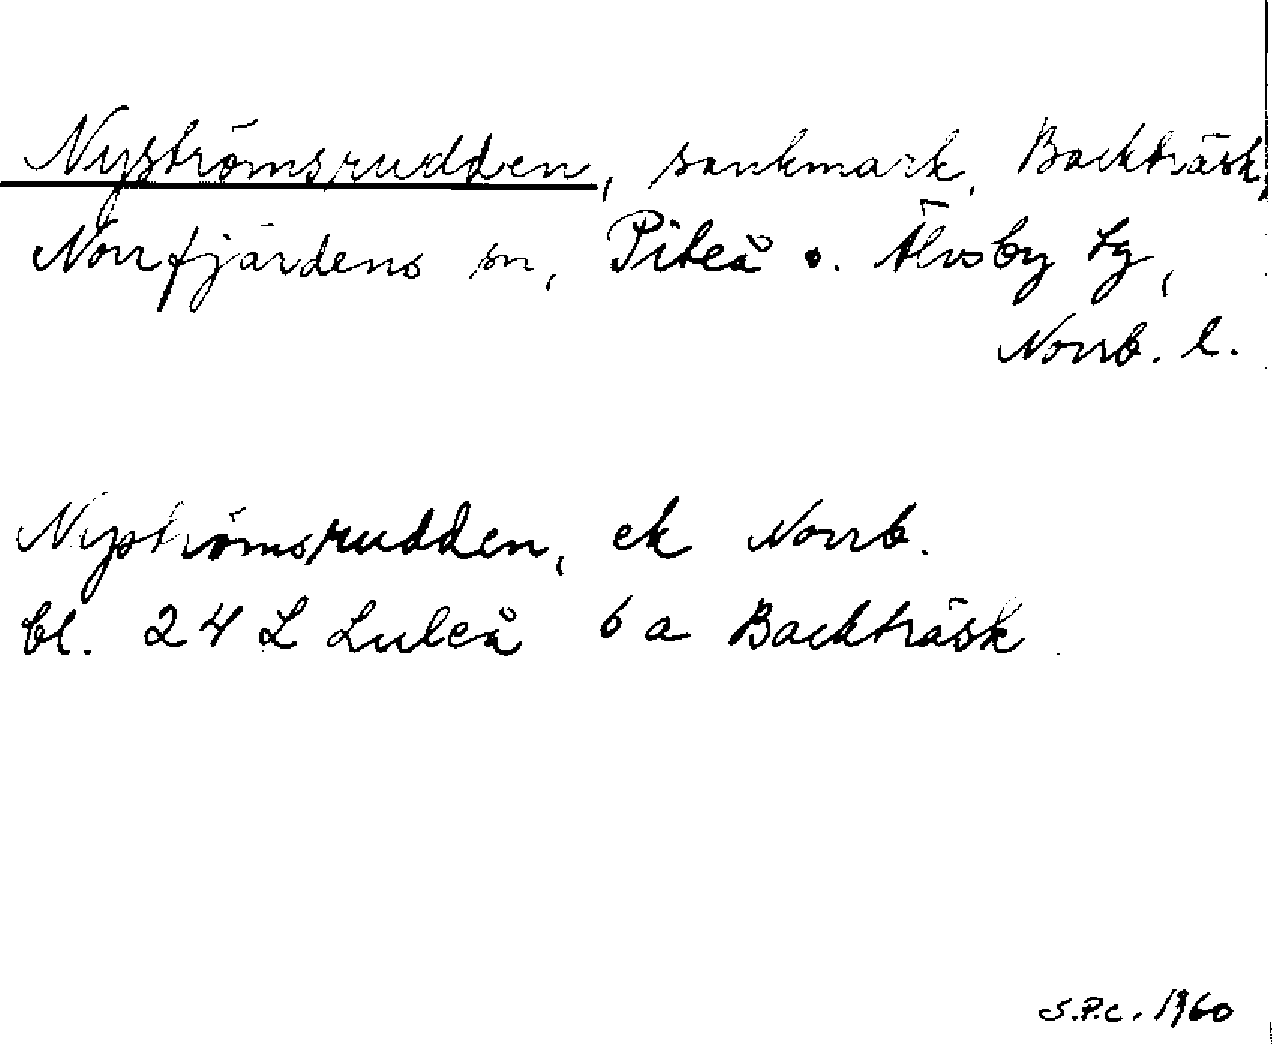 Nyströmsrudden, sankmark, Backträsk,
Norrfjärdens sn, Piteå o. Älvsby tg,
Norrb. l.
Nyströmsrudden, ek Norrb.
bl. 24 L Luleå 6 a Backträsk
S.P.C. 1960